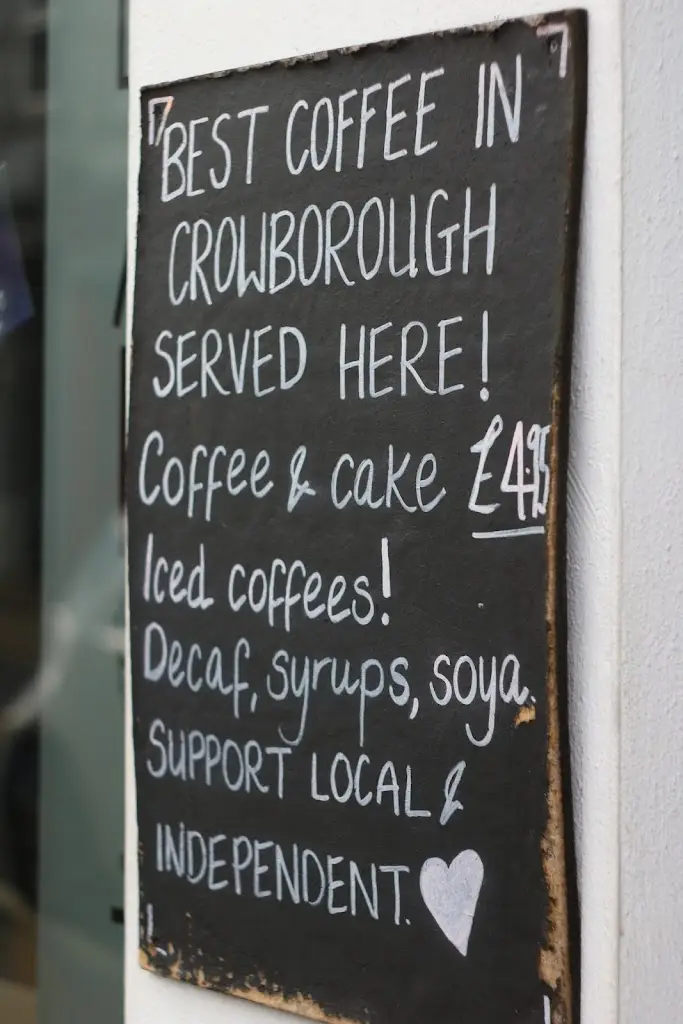 BEST COFFEE IN
CROWBOROUGH
SERVED HERE!
Coffee & cake £4.95
Iced coffees!
Decaf, syrups, soya.
SUPPORT LOCAL &
INDEPENDENT.